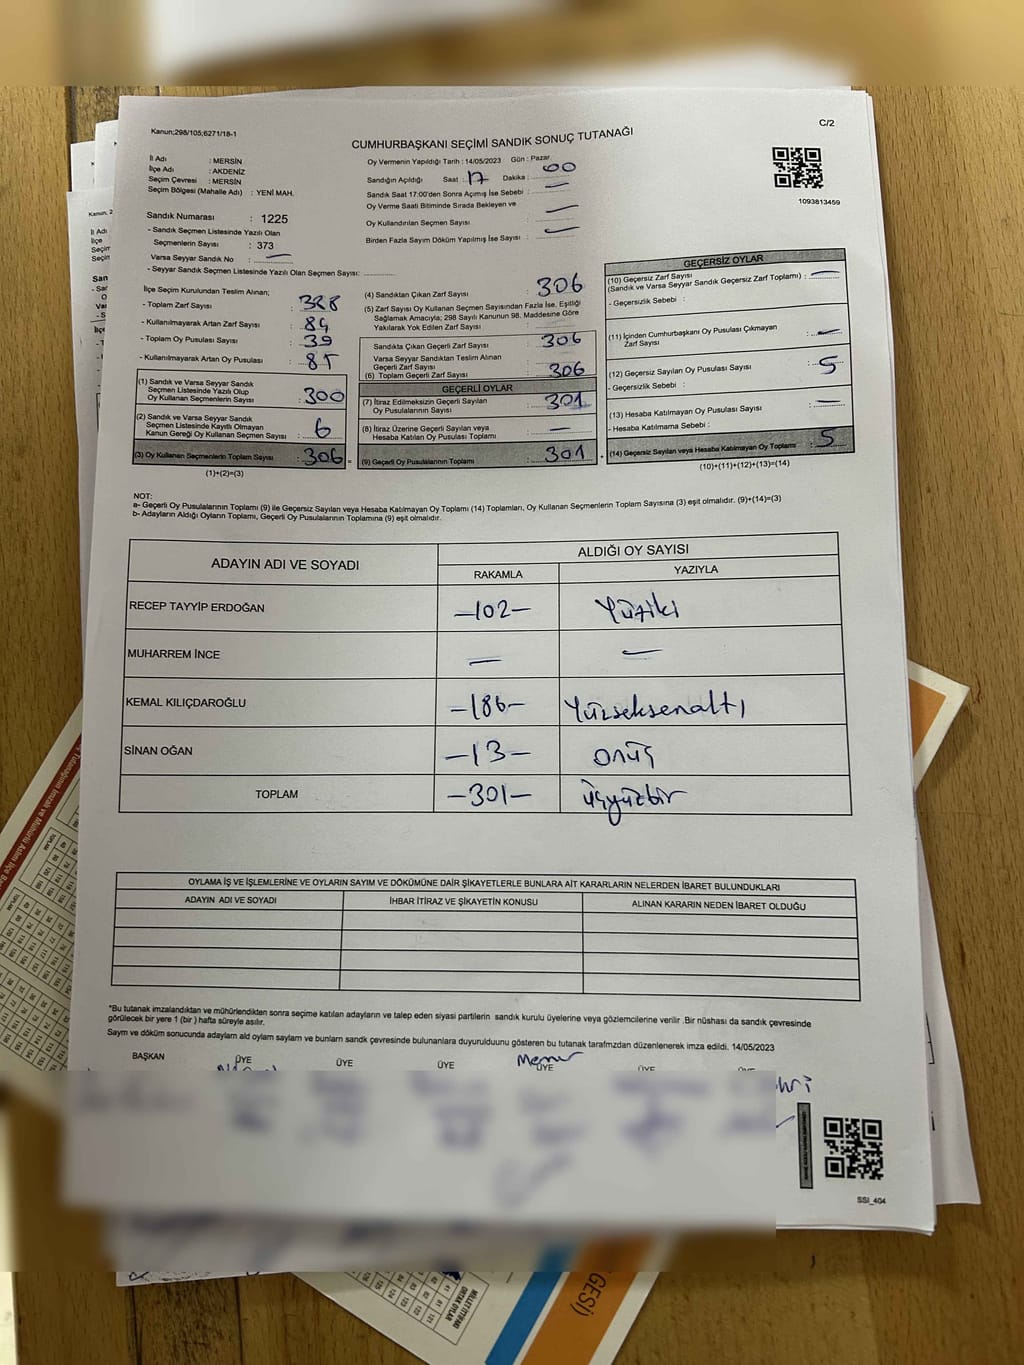 Kanun;298/105;6271/18-1
C/2
CUMHURBAŞKANI SEÇİMİ SANDIK SONUÇ TUTANAĞI
İl Adı : MERSİN
İlçe Adı : AKDENİZ
Seçim Çevresi : MERSİN
Seçim Bölgesi (Mahalle Adı) : YENİ MAH.
Oy Vermenin Yapıldığı Tarih : 14/05/2023 Gün : Pazar
Sandığın Açıldığı Saat : 17 Dakika : 00
Sandık Saat 17:00'den Sonra Açımış İse Sebebi : —
Oy Verme Saati Bitiminde Sırada Bekleyen ve
Oy Kullandırılan Seçmen Sayısı : —
Birden Fazla Sayım Döküm Yapılmış İse Sayısı : —
1093813459
Sandık Numarası : 1225
- Sandık Seçmen Listesinde Yazılı Olan
Seçmenlerin Sayısı : 373
Varsa Seyyar Sandık No : —
- Seyyar Sandık Seçmen Listesinde Yazılı Olan Seçmen Sayısı:
İlçe Seçim Kurulundan Teslim Alınan;
- Toplam Zarf Sayısı :
- Kullanılmayarak Artan Zarf Sayısı : 84
- Toplam Oy Pusulası Sayısı : 39
- Kullanılmayarak Artan Oy Pusulası : 85
(1) Sandık ve Varsa Seyyar Sandık
Seçmen Listesinde Yazılı Olup
Oy Kullanan Seçmenlerin Sayısı : 300
(2) Sandık ve Varsa Seyyar Sandık
Seçmen Listesinde Kayıtlı Olmayan
Kanun Gereği Oy Kullanan Seçmen Sayısı : 6
(3) Oy Kullanan Seçmenlerin Toplam Sayısı : 306
(1)+(2)=(3)
(4) Sandıktan Çıkan Zarf Sayısı : 306
(5) Zarf Sayısı Oy Kullanan Seçmen Sayısından Fazla İse, Eşitliği
Sağlamak Amacıyla; 298 Sayılı Kanunun 98. Maddesine Göre
Yakılarak Yok Edilen Zarf Sayısı :
Sandıkta Çıkan Geçerli Zarf Sayısı : 306
Varsa Seyyar Sandıktan Teslim Alınan
Geçerli Zarf Sayısı :
(6) Toplam Geçerli Zarf Sayısı : 306
GEÇERLİ OYLAR
(7) İtiraz Edilmeksizin Geçerli Sayılan
Oy Pusulalarının Sayısı : 301
(8) İtiraz Üzerine Geçerli Sayılan veya
Hesaba Katılan Oy Pusulası Toplamı : —
(9) Geçerli Oy Pusulalarının Toplamı : 301
GEÇERSİZ OYLAR
(10) Geçersiz Zarf Sayısı
(Sandık ve Varsa Seyyar Sandık Geçersiz Zarf Toplamı) : —
- Geçersizlik Sebebi :
(11) İçinden Cumhurbaşkanı Oy Pusulası Çıkmayan
Zarf Sayısı : —
(12) Geçersiz Sayılan Oy Pusulası Sayısı : 5
- Geçersizlik Sebebi :
(13) Hesaba Katılmayan Oy Pusulası Sayısı : —
- Hesaba Katılmama Sebebi :
(14) Geçersiz Sayılan veya Hesaba Katılmayan Oy Toplamı : 5
(10)+(11)+(12)+(13)=(14)
NOT:
a- Geçerli Oy Pusulalarının Toplamı (9) ile Geçersiz Sayılan veya Hesaba Katılmayan Oy Toplamı (14) Toplamları, Oy Kullanan Seçmenlerin Toplam Sayısına (3) eşit olmalıdır. (9)+(14)=(3)
b- Adayların Aldığı Oyların Toplamı, Geçerli Oy Pusulalarının Toplamına (9) eşit olmalıdır.
ADAYIN ADI VE SOYADI
ALDIĞI OY SAYISI
RAKAMLA YAZIYLA
RECEP TAYYİP ERDOĞAN -102- Yüziki
MUHARREM İNCE — —
KEMAL KILIÇDAROĞLU -186- Yüzseksenaltı
SİNAN OĞAN -13- onüç
TOPLAM -301- üçyüzbir
OYLAMA İŞ VE İŞLEMLERİNE VE OYLARIN SAYIM VE DÖKÜMÜNE DAİR ŞİKAYETLERLE BUNLARA AİT KARARLARIN NELERDEN İBARET BULUNDUKLARI
ADAYIN ADI VE SOYADI İHBAR İTİRAZ VE ŞİKAYETİN KONUSU ALINAN KARARIN NEDEN İBARET OLDUĞU
*Bu tutanak imzalandıktan ve mühürlendikten sonra seçime katılan adayların ve talep eden siyasi partilerin sandık kurulu üyelerine veya gözlemcilerine verilir .Bir nüshası da sandık çevresinde
görülecek bir yere 1 (bir ) hafta süreyle asılır.
Sayım ve döküm sonucunda adayların ald oylam saylam ve bunlarn sandk çevresinde bulunanlara duyurulduunu gösteren bu tutanak tarafmzdan düzenlenerek imza edildi. 14/05/2023
BAŞKAN ÜYE ÜYE ÜYE ÜYE ÜYE
Memur
SSI_404
GESİ)
MİLLET İTTİFAKI
ORTAK OYLAR